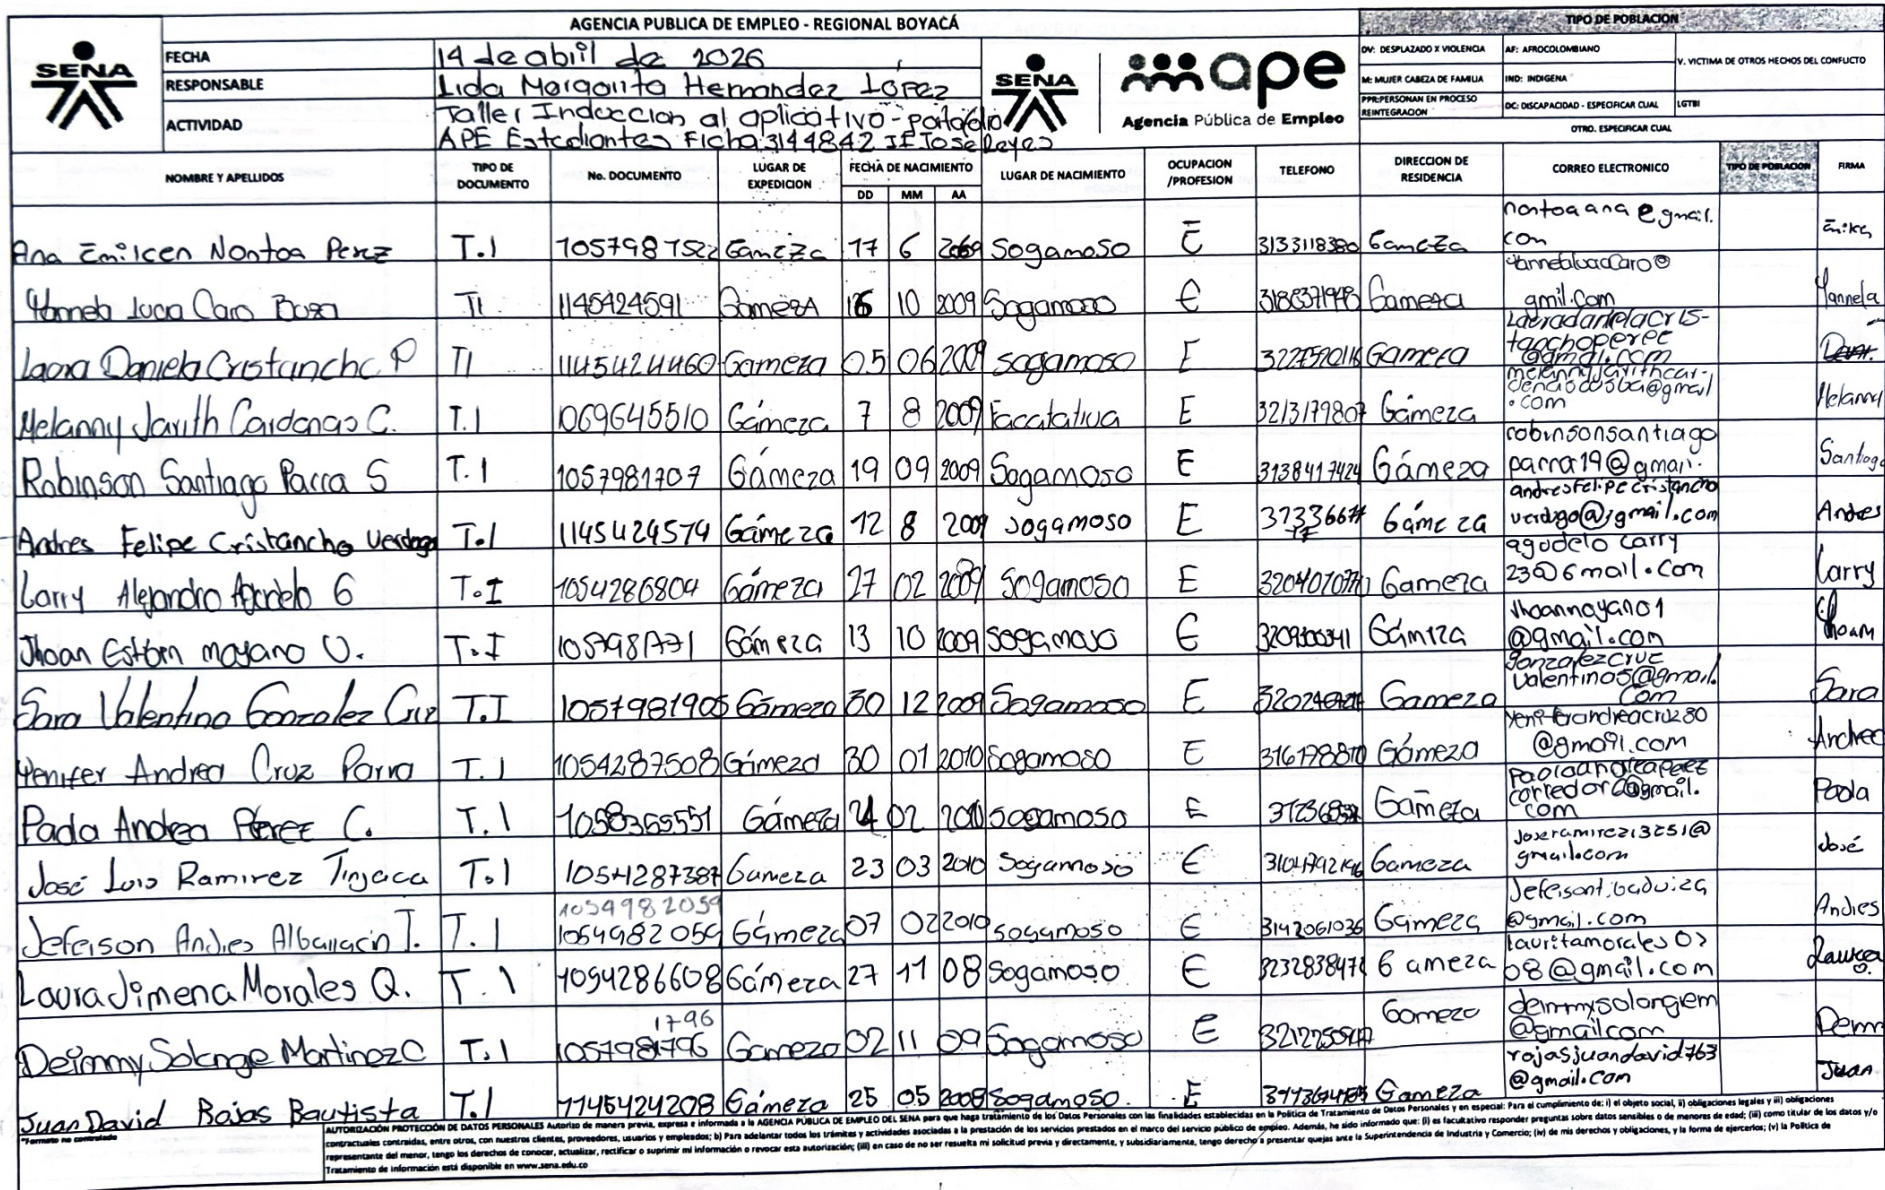 AGENCIA PUBLICA DE EMPLEO - REGIONAL BOYACÁ
TIPO DE POBLACION
SENA
FECHA 14 de abril de 2026
RESPONSABLE Lida Margarita Hernandez López
ACTIVIDAD Taller Induccion al aplicativo - portafolio
APE Estudiantes Ficha:3144842 IE Jose Reyes
SENA
ape
Agencia Pública de Empleo
DV: DESPLAZADO X VIOLENCIA AF: AFROCOLOMBIANO V. VICTIMA DE OTROS HECHOS DEL CONFLICTO
M: MUJER CABEZA DE FAMILIA IND: INDIGENA
PPR:PERSONAN EN PROCESO REINTEGRACION DC: DISCAPACIDAD - ESPECIFICAR CUAL LGTBI
OTRO. ESPECIFICAR CUAL
NOMBRE Y APELLIDOS TIPO DE DOCUMENTO No. DOCUMENTO LUGAR DE EXPEDICION FECHA DE NACIMIENTO LUGAR DE NACIMIENTO OCUPACION /PROFESION TELEFONO DIRECCION DE RESIDENCIA CORREO ELECTRONICO TIPO DE POBLACION FIRMA
DD MM AA
Ana Emilcen Nontoa Perez T.I Gameza 17 6 Sogamoso E 3133118380 Gameza nontoaana@gmail.con
Lucia Caro TI 1145424591 Gameza 10 2009 Sogamoso E Gameza gmil.com Yannela
Laura Daniela Cristancho P TI 1145424460 Gameza 05 06 2009 sogamoso E Gameza
Melanny Javith Cardenas C. T.I 1069645510 Gámeza 7 8 2009 Facatativa E 3213179807 Gámeza Melanny
Robinson Santiago Parra S T.I 1057981707 Gámeza 19 09 2009 Sogamoso E 3138417424 Gámeza robinsonsantiago parra19@gmail. Santiago
Andres Felipe Cristancho Verdugo T.I 1145424574 Gámeza 12 8 2009 Sogamoso E Gámeza andresfelipecristancho verdugo@gmail.com Andres
Larry Alejandro Agudelo G T.I 1054286804 Gámeza 27 02 2009 Sogamoso E Gameza agudelo larry 23@Gmail.com Larry
Jhoan Moyano V. T.I Gámeza 13 10 2009 Sogamoso E Gámeza jhoanmoyano1 @gmail.com Jhoam
Sara Valentina Gonzalez Cruz T.I 1057981905 Gámeza 30 12 2009 Sogamoso E Gameza gonzalezcruz valentina5@gmail.com Sara
Yenifer Andrea Cruz Parra T.I 1054287508 Gámeza 30 01 2010 Sogamoso E Gámeza @gmail.com Andrea
Paola Andrea Pérez C. T.I 1058365551 Gámeza 02 Sogamoso E Gameza paolaandreaperez corredor@gmail.com Paola
José Luis Ramirez Tinjaca T.I 1054287387 Gameza 23 03 2010 Sogamoso E Gameza joseramirez13251@ gmail.com José
1054982059
Jefeison Andres Albarracin T. T.I 1054982059 Gámeza 07 02 2010 sogamoso E 3142061036 Gámeza @gmail.com Andres
Laura Jimena Morales Q. T.I 1054286608 Gámeza 27 11 08 Sogamoso E Gameza lauritamorales07 08@gmail.com Laura
1796
Deimmy Solange Martinez C T.I 1057981796 Gameza 02 11 09 Sogamoso E Gameza deimmysolangiem @gmail.com Deim
Juan David Rojas Bautista T.I 1145424208 Gámeza 25 05 2008 Sogamoso. E Gameza rojasjuandavid763 @gmail.com Juan
*Formato no controlado
AUTORIZACIÓN PROTECCIÓN DE DATOS PERSONALES Autorizo de manera previa, expresa e informada a la AGENCIA PÚBLICA DE EMPLEO DEL SENA para que haga tratamiento de los Datos Personales con las finalidades establecidas en la Política de Tratamiento de Datos Personales y en especial: Para el cumplimiento de: i) el objeto social, ii) obligaciones legales y iii) obligaciones
contractuales contraidas, entre otros, con nuestros clientes, proveedores, usuarios y empleados; b) Para adelantar todos los trámites y actividades asociadas a la prestación de los servicios prestados en el marco del servicio público de empleo. Además, he sido informado que: (i) es facultativo responder preguntas sobre datos sensibles o de menores de edad; (ii) como titular de los datos y/o
representante del menor, tengo los derechos de conocer, actualizar, rectificar o suprimir mi información o revocar esta autorización; (iii) en caso de no ser resuelta mi solicitud previa y directamente, y subsidiariamente, tengo derecho a presentar quejas ante la Superintendencia de Industria y Comercio; (iv) de mis derechos y obligaciones, y la forma de ejercerlos; (v) la Política de
Tratamiento de información está disponible en www.sena.edu.co